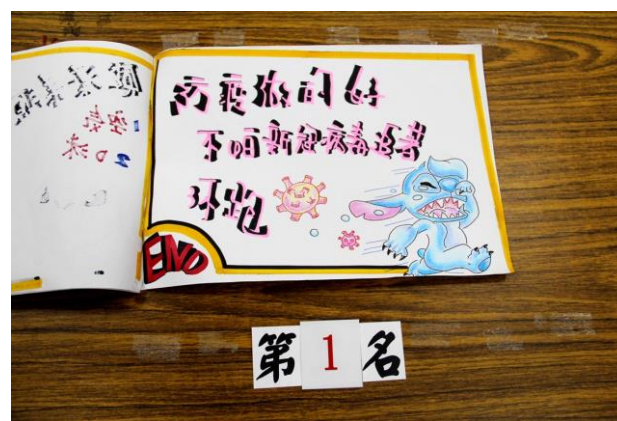 防疫做的好
不怕新冠病毒追著
你跑
END
第1名